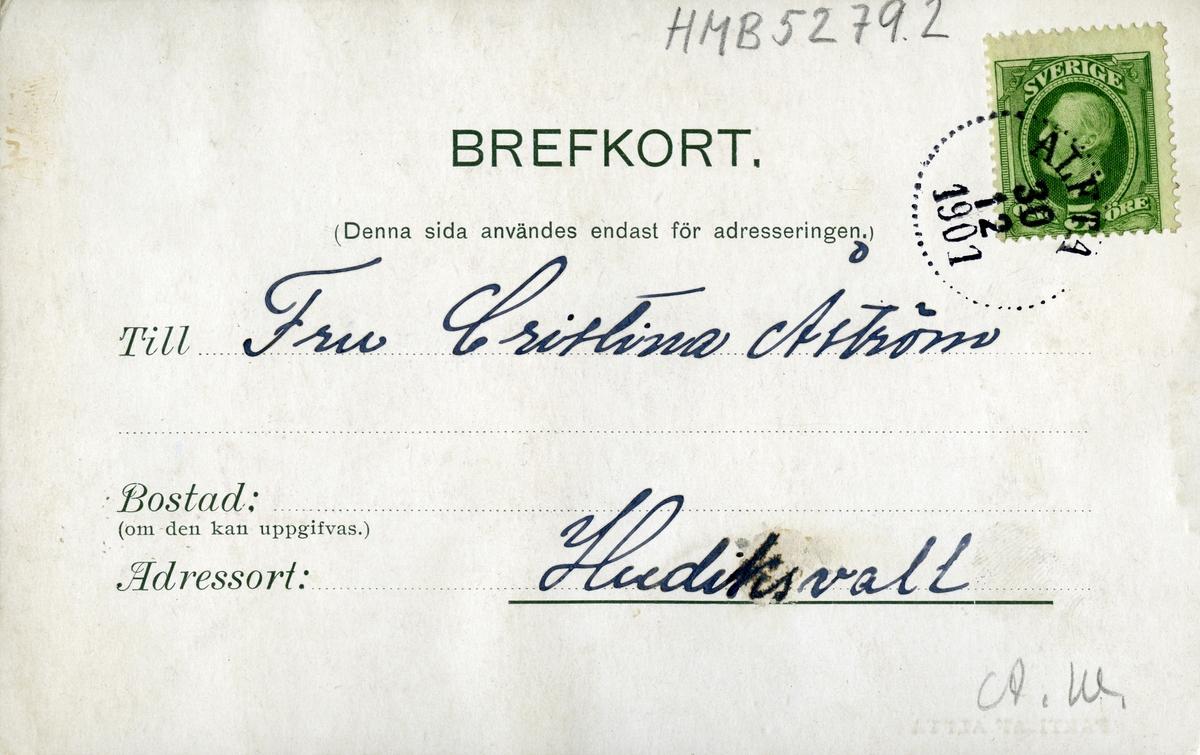 HMB 5279.2
SVERIGE
ÖRE
ALFTA
30
12
1901
BREFKORT.
(Denna sida användes endast för adresseringen.)
Till Fru Cristina Åström
Bostad:
(om den kan uppgifvas.)
Adressort: Hudiksvall
A. W.